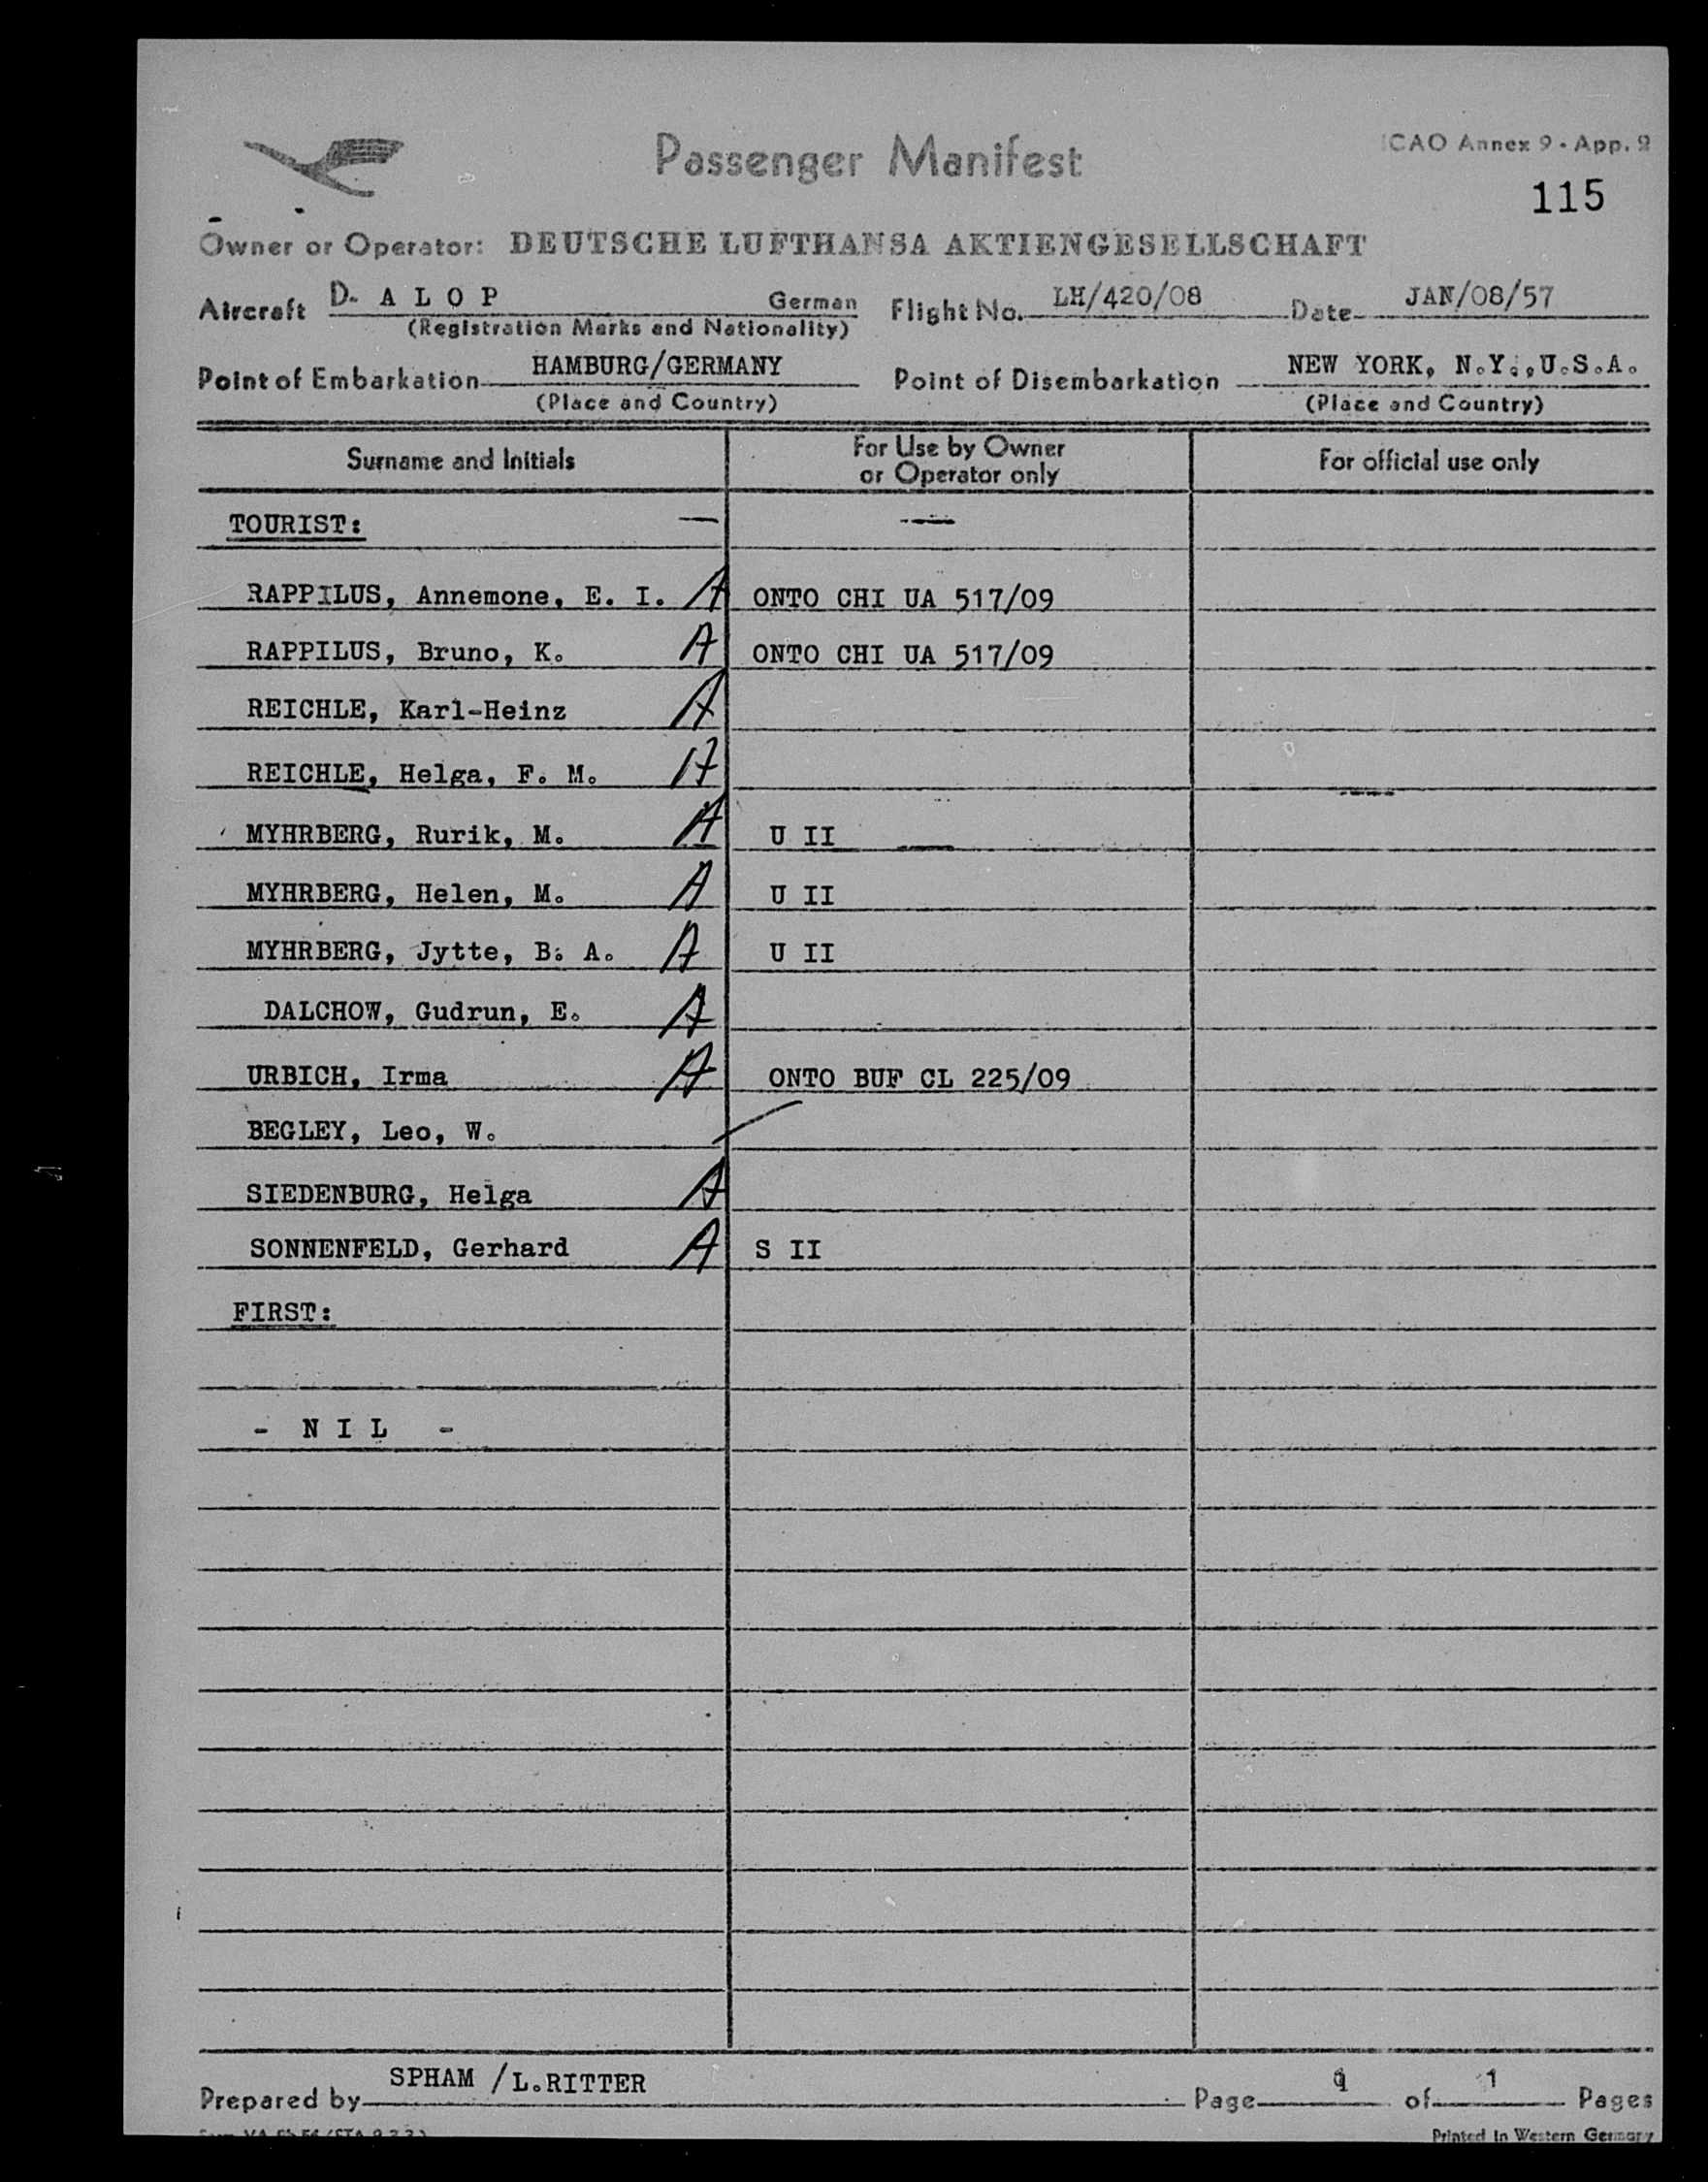 Passenger Manifest
ICAO Annex 9 - App. 2
115
Owner or Operator: DEUTSCHE LUFTHANSA AKTIENGESELLSCHAFT
Aircraft D- A L O P German Flight No. LH/420/08 Date JAN/08/57
(Registration Marks and Nationality)
Point of Embarkation HAMBURG/GERMANY Point of Disembarkation NEW YORK, N.Y.,U.S.A.
(Place and Country) (Place and Country)
Surname and Initials For Use by Owner or Operator only For official use only
TOURIST: — —
RAPPILUS, Annemone, E. I. A ONTO CHI UA 517/09
RAPPILUS, Bruno, K. A ONTO CHI UA 517/09
REICHLE, Karl-Heinz A
REICHLE, Helga, F. M. A
MYHRBERG, Rurik, M. A U II
MYHRBERG, Helen, M. A U II
MYHRBERG, Jytte, B. A. A U II
DALCHOW, Gudrun, E. A
URBICH, Irma A ONTO BUF CL 225/09
BEGLEY, Leo, W.
SIEDENBURG, Helga A
SONNENFELD, Gerhard A S II
FIRST:
- N I L -
Prepared by SPHAM /L.RITTER Page 1 of 1 Pages
Printed in Western Germany